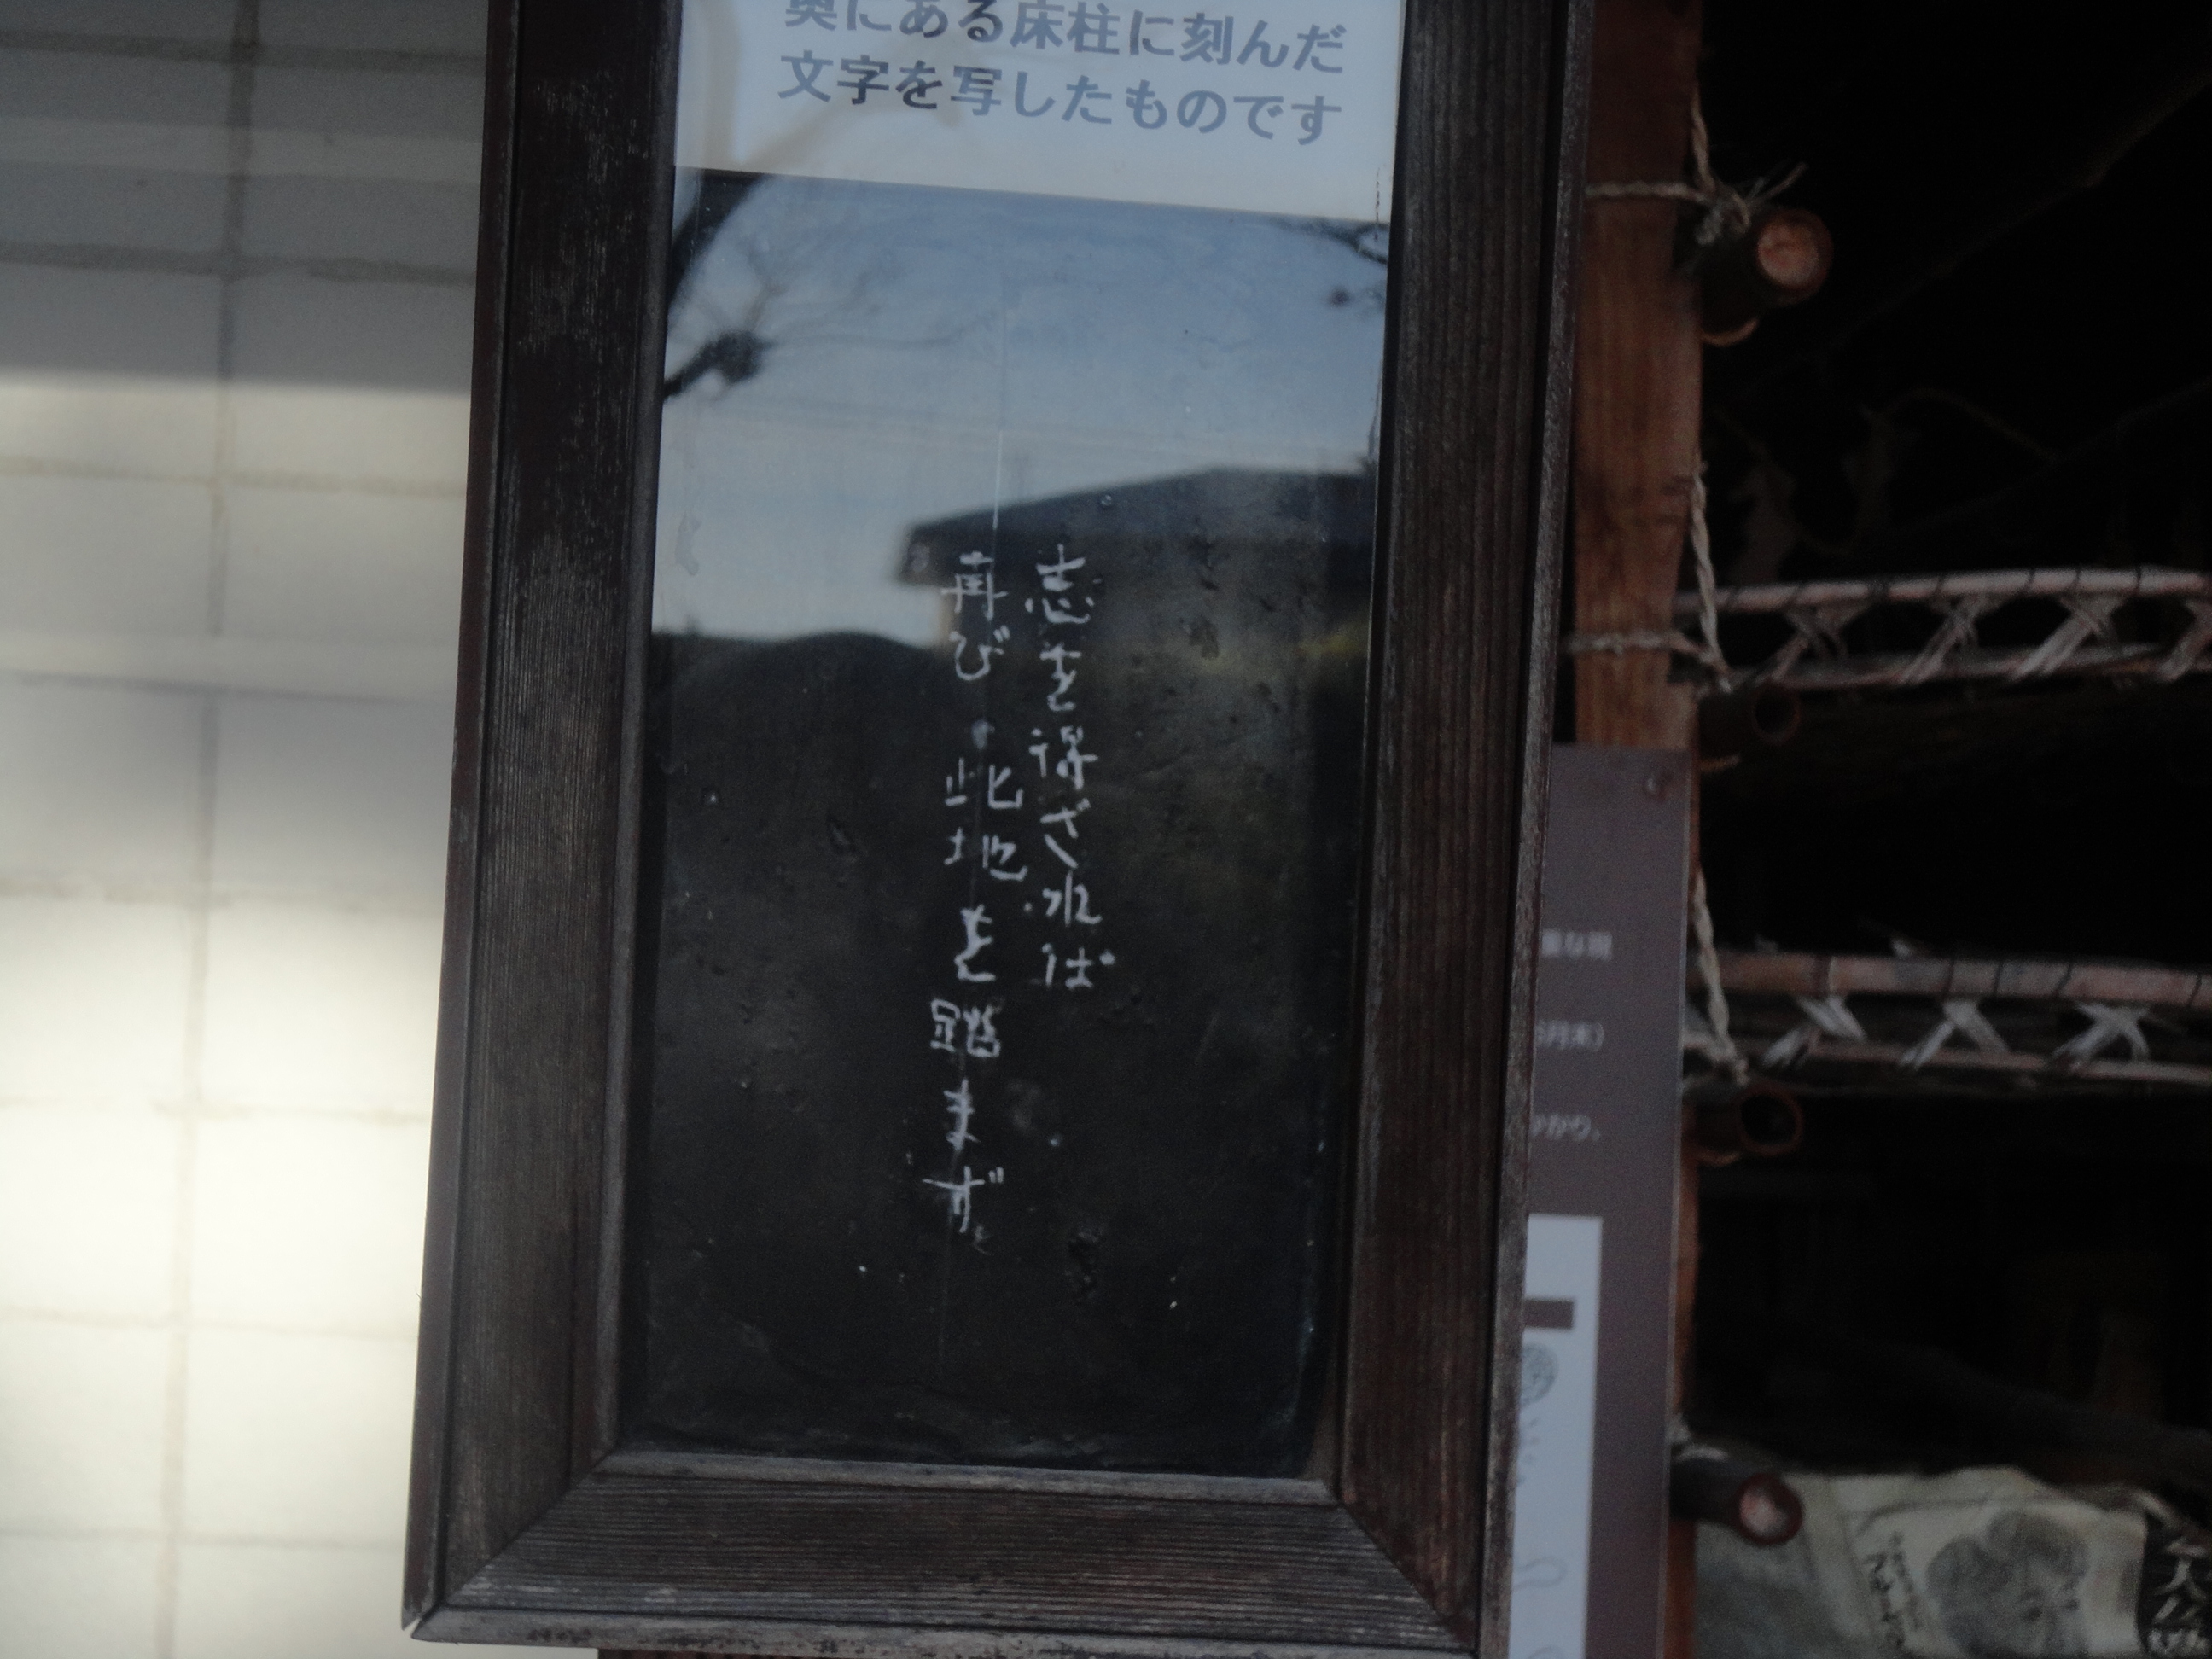 奥にある床柱に刻んだ
文字を写したものです
志を得ざれば
再び此地を踏まず
重な現
月末）
かり、